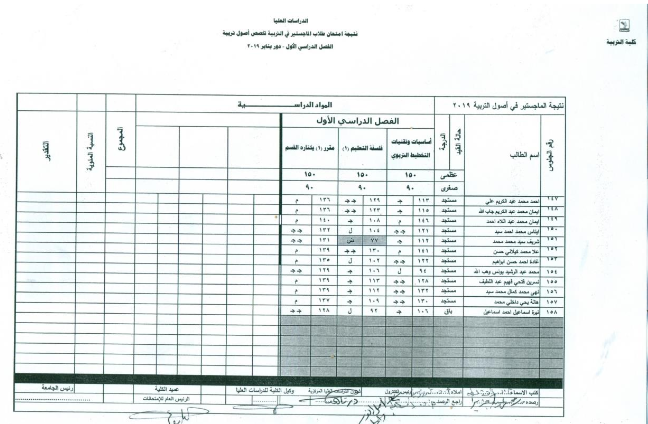 الدراسات العليا
نتيجة امتحان طلاب الماجستير في التربية تخصص أصول تربية
الفصل الدراسي الأول - دور يناير ٢٠١٩
كلية التربية
نتيجة الماجستير في أصول التربية ٢٠١٩
المواد الدراسية
رقم الجلوس
اسم الطالب
حالة القيد
الدرجة
الفصل الدراسي الأول
المجموع
النسبة المئوية
التقدير
أساسيات وتقنيات التخطيط التربوي
فلسفة التعليم (١)
مقرر (١) يختاره القسم
عظمى ١٥٠ ١٥٠ ١٥٠
صغرى ٩٠ ٩٠ ٩٠
١٤٧ احمد محمد عبد الكريم علي مستجد ١١٣ ج ١٢٩ جـ جـ ١٣٦ م
١٤٨ ايمان محمد عبد الكريم جاب الله مستجد ١١٥ ج ١٢٣ جـ جـ ١٣٦ م
١٤٩ ايمان محمد عبد اللاه احمد مستجد ١٤٦ م ١٠٨ ج ١٤٠ م
١٥٠ ايناس محمد احمد سيد مستجد ١٢١ جـ جـ ١٠٤ ل ١٣٢ جـ جـ
١٥١ شريف سيد محمد محمد مستجد ١١٢ ج ٧٧ ض ١٣١ جـ جـ
١٥٢ علا محمد كيلاني حسن مستجد ١٤١ م ١٣٠ جـ جـ ١٣٩ م
١٥٣ غادة احمد حسن ابراهيم مستجد ١٢٢ جـ جـ ١٠٢ ل ١٣٥ م
١٥٤ محمد عبد الرشيد يونس وهب الله مستجد ٩٤ ل ١٠٦ ج ١٢٩ جـ جـ
١٥٥ نسرين فتحي فهيم عبد اللطيف مستجد ١٢٨ جـ جـ ١١٣ ج ١٣٩ م
١٥٦ نهي محمد كمال محمد سيد مستجد ١٣٢ جـ جـ ١١٢ ج ١٣٩ م
١٥٧ هالة يحي داخلي محمد مستجد ١٣٠ جـ جـ ١٠٩ ج ١٣٧ م
١٥٨ نورة اسماعيل احمد اسماعيل باق ١٠٦ ج ٩٢ ل ١٢٨ جـ جـ
كتب الاسماء
رصده
راجع الرصد
وكيل الكلية للدراسات العليا
عميد الكلية
الرئيس العام للإمتحانات
رئيس الجامعة